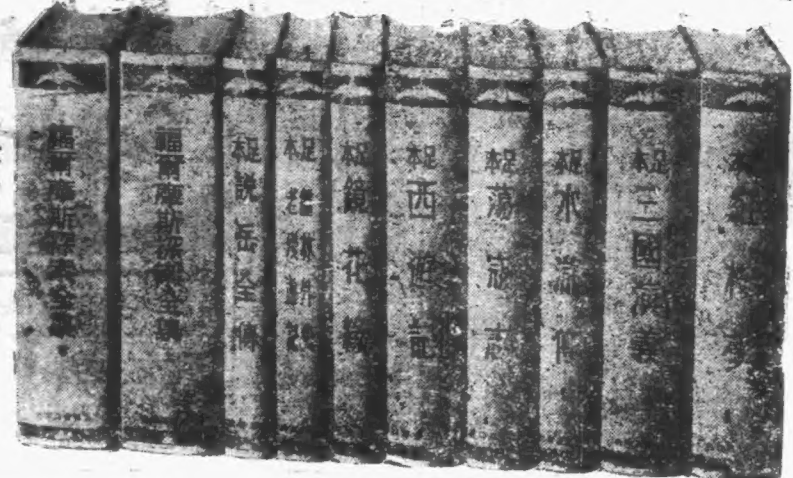 足本 紅樓夢
足本 三國演義
足本 水滸傳
足本 蕩寇志
足本 西遊記
足本 鏡花緣
足本 老殘遊記
足本 說岳全傳
福爾摩斯探案全集
福爾摩斯探案全集